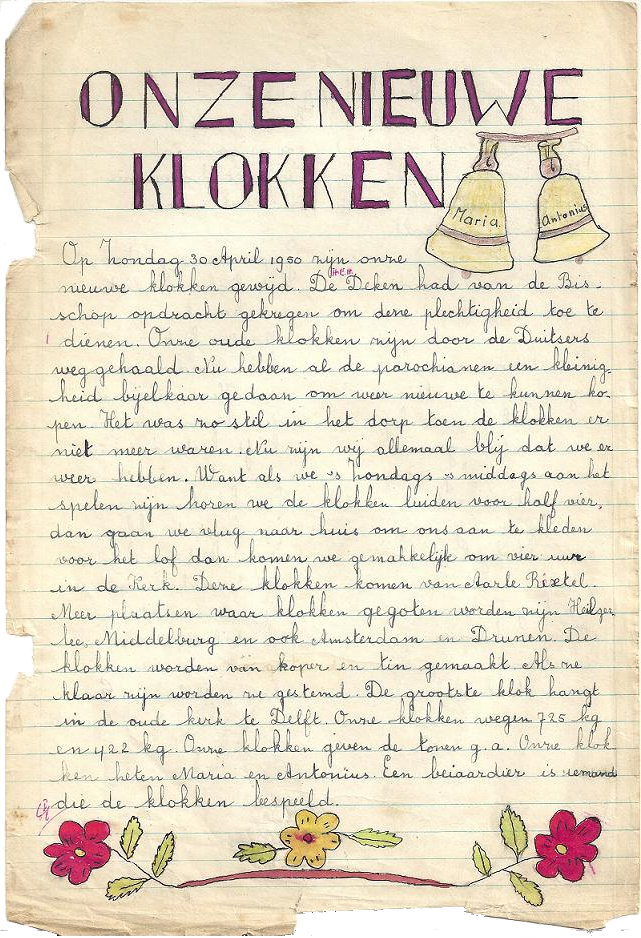 ONZE NIEUWE
KLOKKEN
Maria
Antonius
Op Zondag 30 April 1950 zijn onze
nieuwe klokken gewijd. De Deken had van de Bis-
schop opdracht gekregen om deze plechtigheid toe te
dienen. Onze oude klokken zijn door de Duitsers
weggehaald. Nu hebben al de parochianen een kleinig-
heid bijelkaar gedaan om weer nieuwe te kunnen ko-
pen. Het was zo stil in het dorp toen de klokken er
niet meer waren. Nu zijn wij allemaal blij dat we er
weer hebben. Want als we 's Zondags 's middags aan het
spelen zijn horen we de klokken luiden voor half vier,
dan gaan we vlug naar huis om ons aan te kleden
voor het lof dan komen we gemakkelijk om vier uur
in de Kerk. Deze klokken komen van Aarle Rixtel.
Meer plaatsen waar klokken gegoten worden zijn Heilger
lee, Middelburg en ook Amsterdam en Drunen. De
klokken worden van koper en tin gemaakt. Als ze
klaar zijn worden ze gestemd. De grootste klok hangt
in de oude kerk te Delft. Onze klokken wegen 725 kg
en 422 kg. Onze klokken geven de tonen g. a. Onze klok
ken heten Maria en Antonius. Een beiaardier is iemand
die de klokken bespeeld.